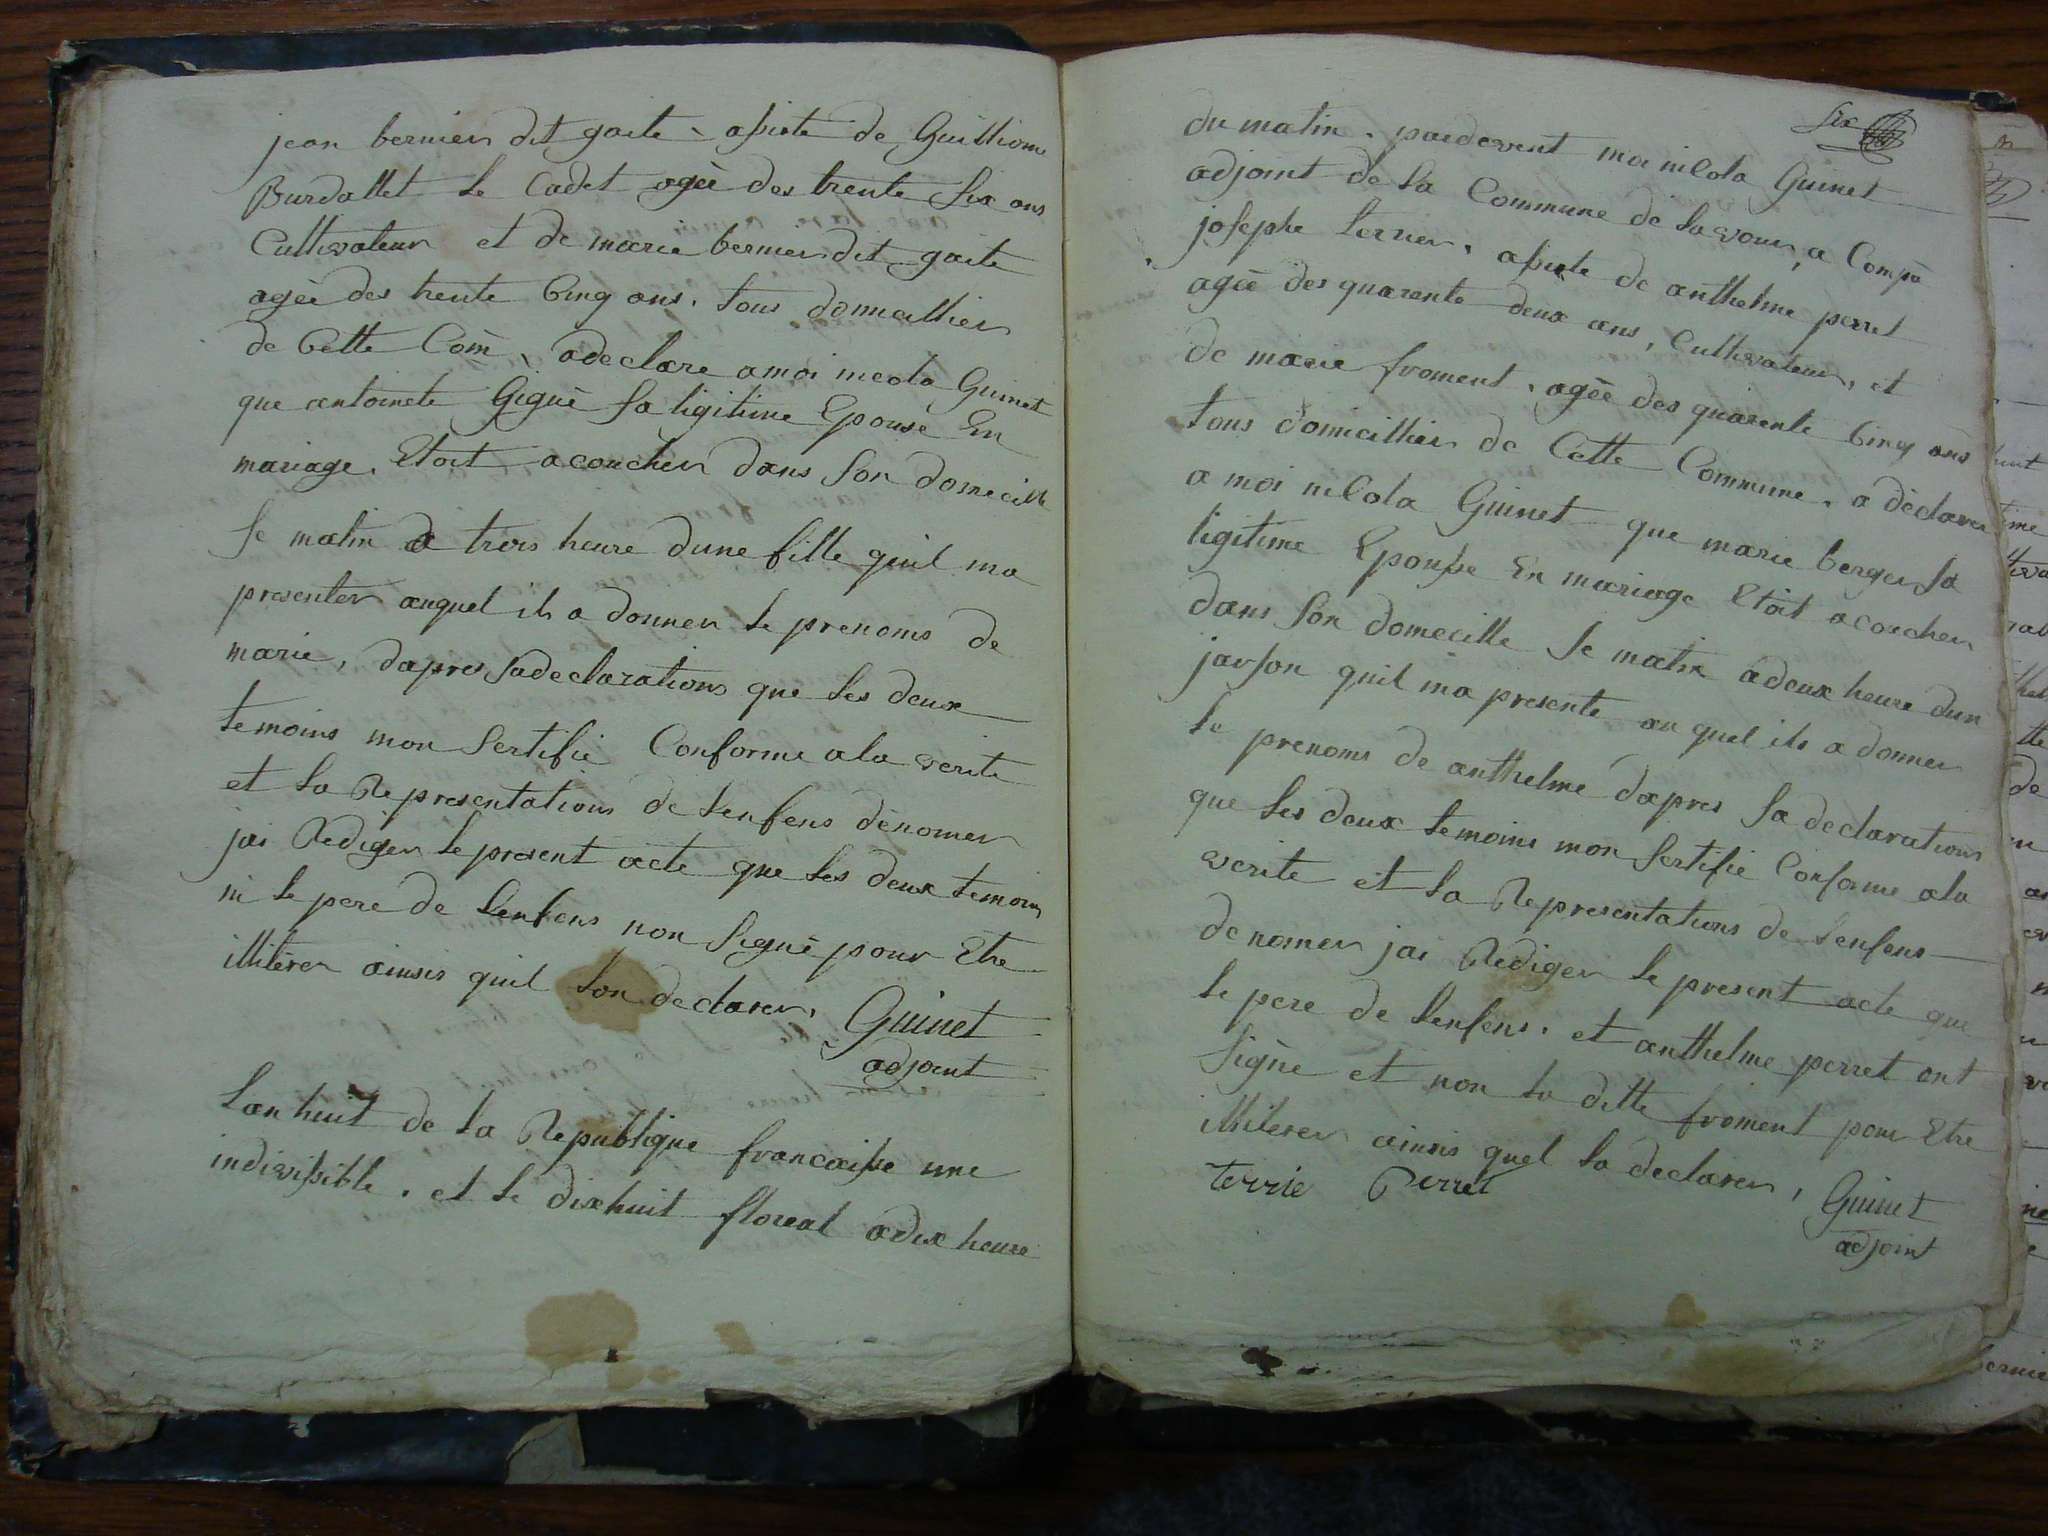 jean bernier dit gaite, assiste de Guilliome
Burdallet le Cadet agée des trente six ans
Cultivateur et de marie bernier dit gaite
agée des trente Cinq ans. tous domicillier
de Cette Com̄, adeclare a moi nicola Guinet
que antoinete Giguè sa ligitime Epouse En
mariage. Etoit acoucher dans son domecille
se matin a trois heure dune fille quil ma
presenter auquel ils a donner le prenoms de
marie, dapres sadeclarations que les deux
temoins mon Sertifié Conforme ala verite
et la Representations de lenfens dénomer
jai Rediger le present acte que les deux temoin
ni le pere de lenfens non Signé pour Etre
illiterer ainsis quil lon declarer, Guinet
adjoint
Lan huit de la Republique francaisse une
indivissible. et le dixhuit floreal adix heure
Six
du matin. pardevent moi nicola Guinet
adjoint de la Commune de lavour, a Compē
josephe terrier, assiste de anthelme perret
agée des quarente deux ans, Cultivateur, et
de marie froment. agée des quarente Cinq ans
tous domicillier de Cette Commune. a déclarer
a moi nicola Guinet que marie berger sa
ligitime Epousse En mariage Etoit acoucher
dans son domecille se matin a deux heure dun
jarson quil ma presente au quel ils a donner
le prenoms de anthelme dapres sa declarations
que les deux temoins mon Sertifié Conforme ala
verite et la Representations de lenfens
denomer jai Rediger le present acte que
le pere de lenfens. et anthelme perret ont
Signe et non la ditte froment pour Etre
illiterer ainsis quel la declarer, Guinet
terrié Perret
adjoint